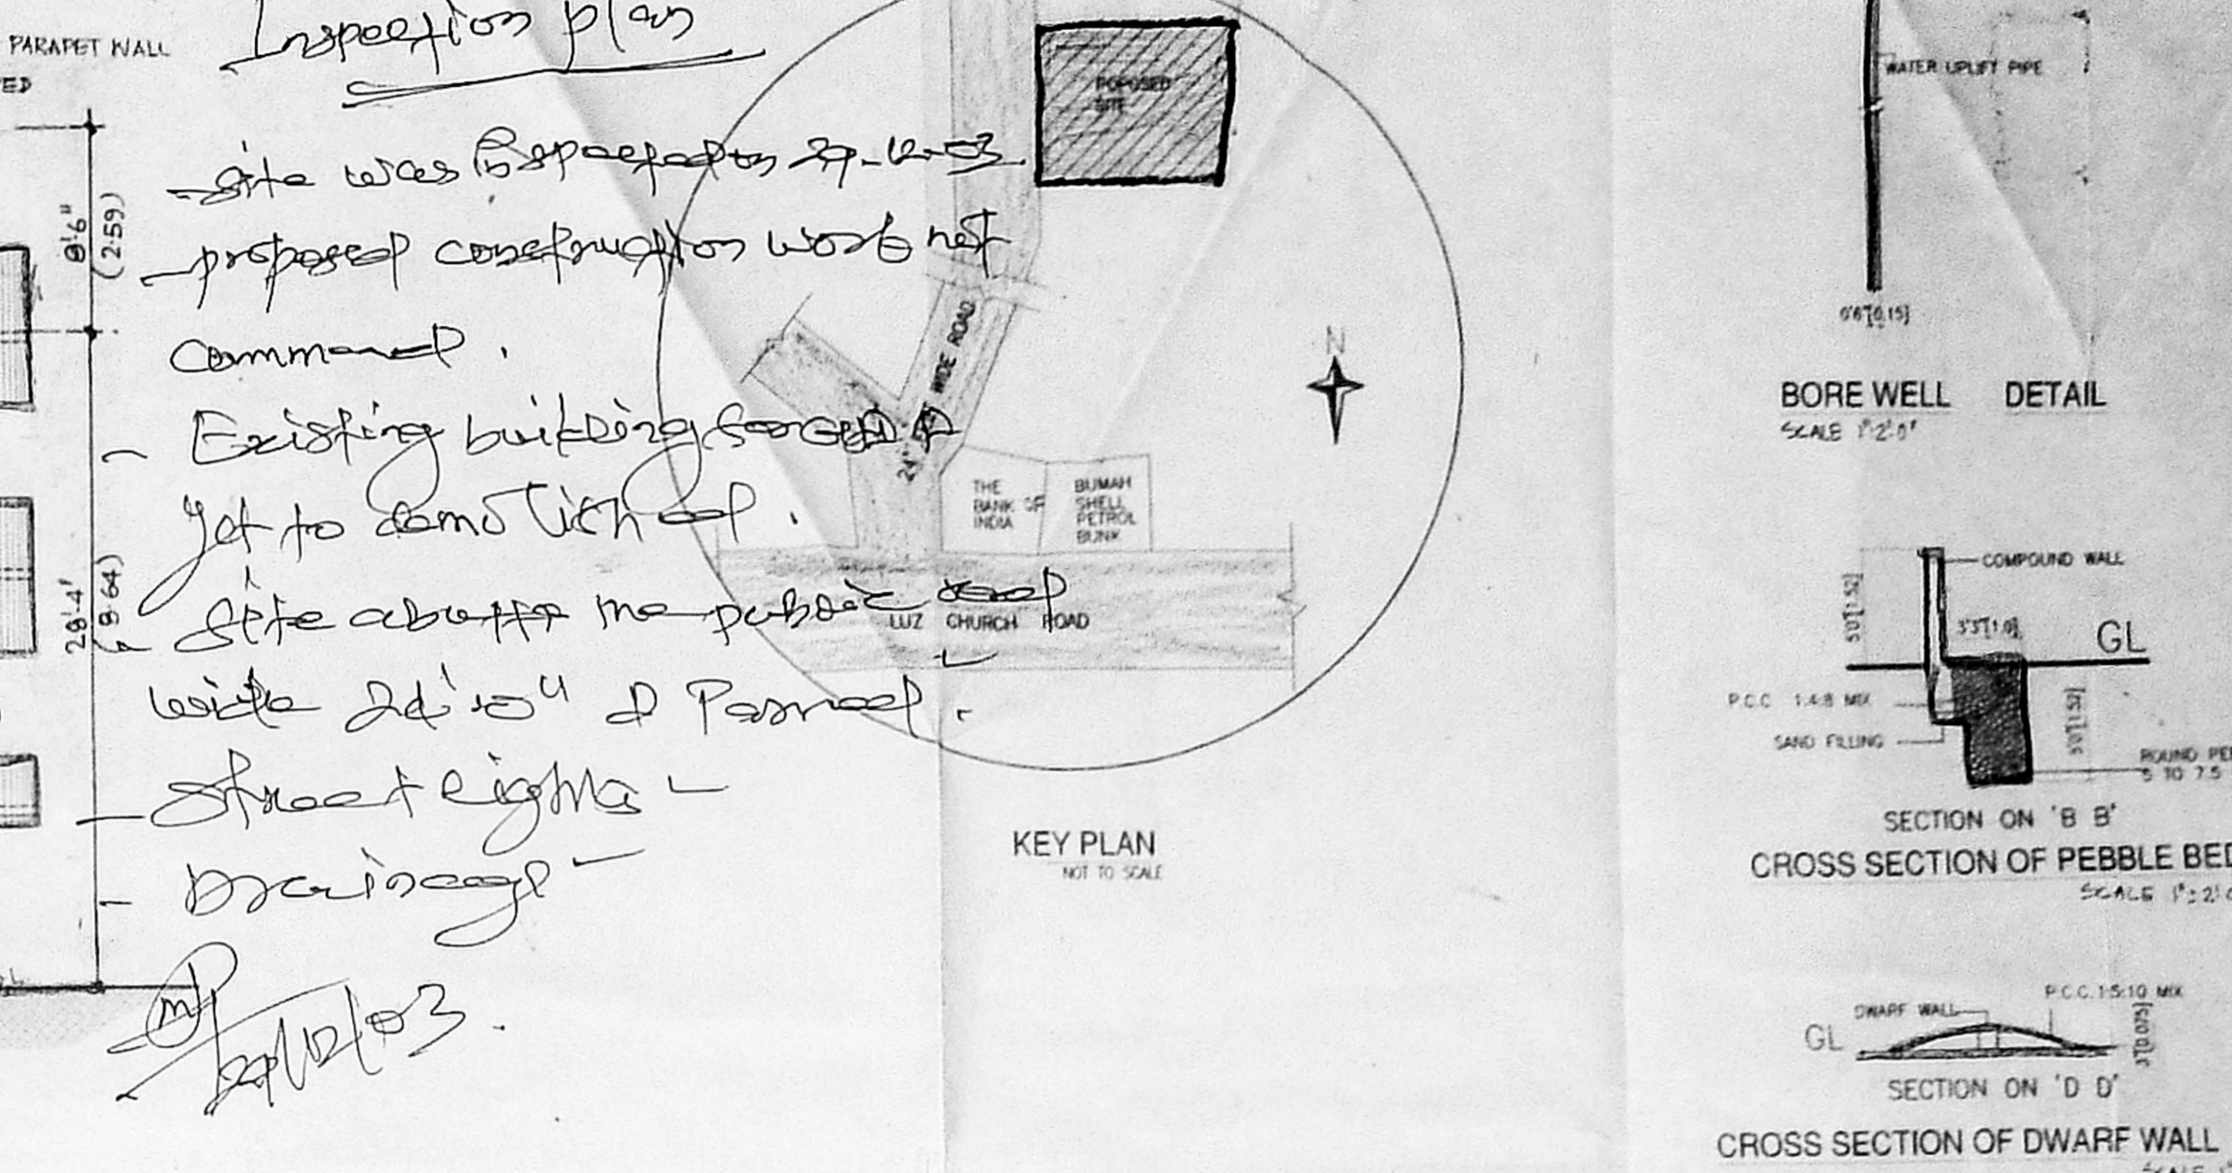 PARAPET WALL
ED
8'6"
(2.59)
28'-4'
(8.64)
Inspection plan
- site was Inspected on 29-12-03
- proposed construction work not
commenced.
- Existing building
yet to demolished.
- Site abutts the public road
wide 24'-0" & Formed.
- Street lights -
- Drainage -
29/12/03.
POPOSED
SITE
24' WIDE ROAD
N
THE
BANK OF
INDIA
BUMAH
SHELL
PETROL
BUNK
LUZ CHURCH ROAD
KEY PLAN
NOT TO SCALE
WATER UPLIFT PIPE
0'6"[0.15]
BORE WELL DETAIL
SCALE 1"=2'-0"
COMPOUND WALL
5'0"[1.52]
3'3"[1.0]
GL
P.C.C 1:4:8 MIX
SAND FILLING
5'0"[1.52]
ROUND PE
5 TO 7.5
SECTION ON 'B B'
CROSS SECTION OF PEBBLE BED
SCALE 1":2'
P.C.C. 1:5:10 MIX
DWARF WALL
GL
3"[0.075]
SECTION ON 'D D'
CROSS SECTION OF DWARF WALL